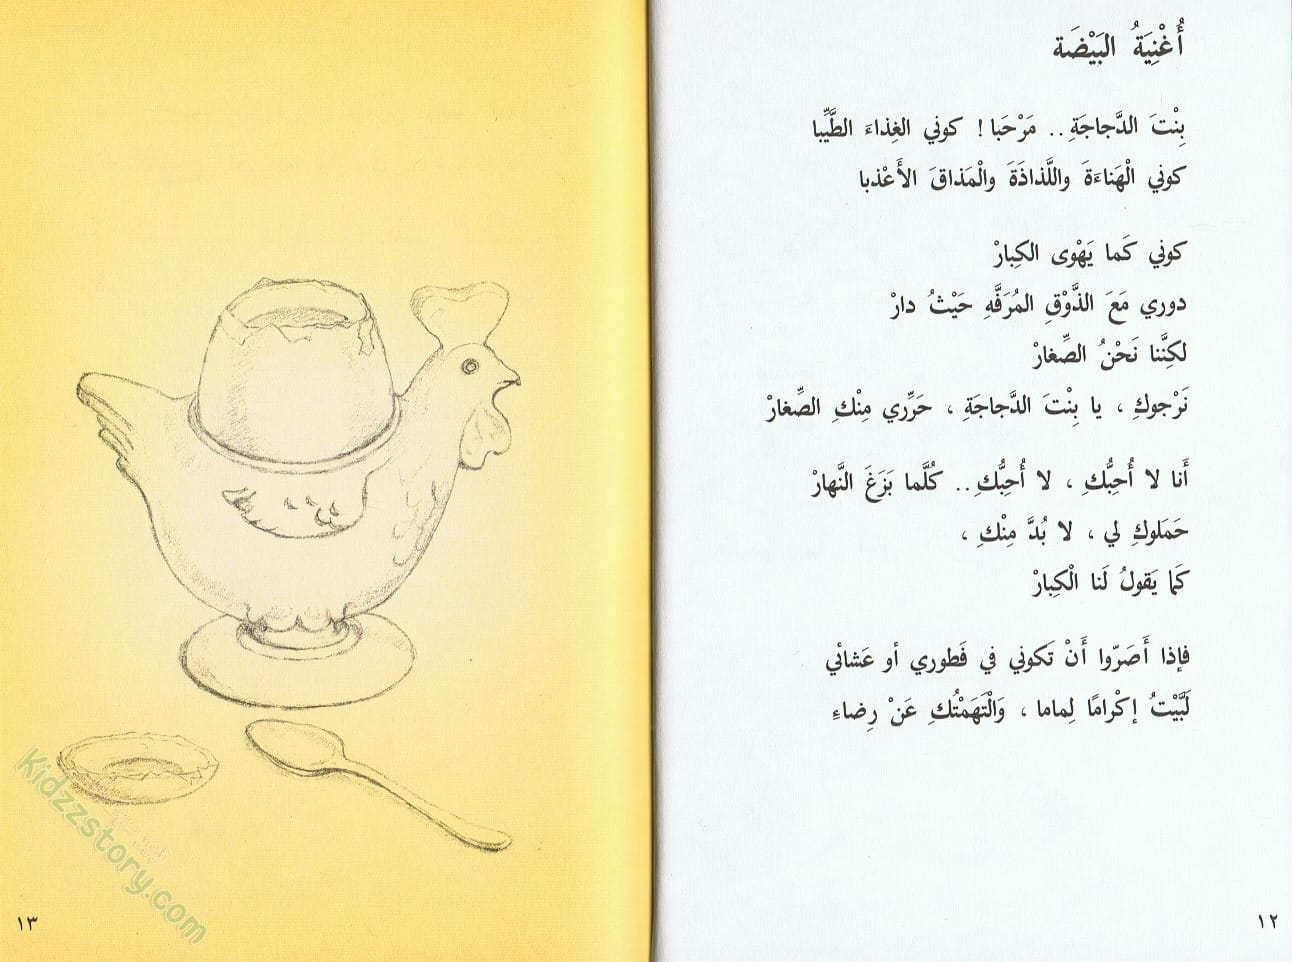 أُغْنِيَةُ البَيْضَة
بِنْتَ الدَّجاجَةِ.. مَرْحَبا! كوني الغِذاءَ الطَّيِّبا
كوني الْهَناءَةَ واللَّذاذَةَ والْمَذاقَ الأَعْذبا
كوني كَما يَهْوى الكِبارْ
دوري مَعَ الذَّوْقِ المُرَفَّهِ حَيْثُ دارْ
لكِنَّنا نَحْنُ الصِّغارْ
نَرْجوكِ ، يا بِنْتَ الدَّجاجَةِ ، حَرِّري مِنْكِ الصِّغارْ
أَنا لا أُحِبُّكِ ، لا أُحِبُّكِ.. كُلَّما بَزَغَ النَّهارْ
حَمَلوكِ لي ، لا بُدَّ مِنْكِ ،
كَما يَقولُ لَنا الْكِبارْ
فإذا أَصَرّوا أَنْ تَكوني في فَطوري أو عَشائي
لَبَّيْتُ إكْرامًا لِماما ، وَالْتَهَمْتُكِ عَنْ رِضاءِ
١٢
Kidzzstory.com
١٣